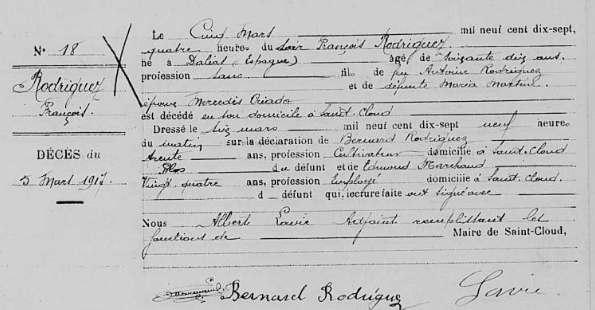 N° 18
Rodriguez
François.
DÉCÈS du
5 Mars 1917
Le Cinq Mars mil neuf cent dix-sept,
quatre heure du soir François Rodriguez
né à Dalias (Espagne) âgé de soixante dix ans.
profession sans fil de feu Antoine Rodriguez
et de défunte Maria Martin
époux Mercedès Criado
est décédé en son domicile à Saint-Cloud
Dressé le six mars mil neuf cent dix-sept neuf heure
du matin sur la déclaration de Bernard Rodriguez
trente ans, profession Cultivateur domicilié à Saint-Cloud
fils du défunt et Edmond Marchand
Vingt quatre ans, profession Employé domicilié à Saint-Cloud.
d défunt qui, lecture faite ont signé avec
Nous Albert Lavie Adjoint remplissant les
fonctions de Maire de Saint-Cloud,
Bernard Rodriguez Lavie